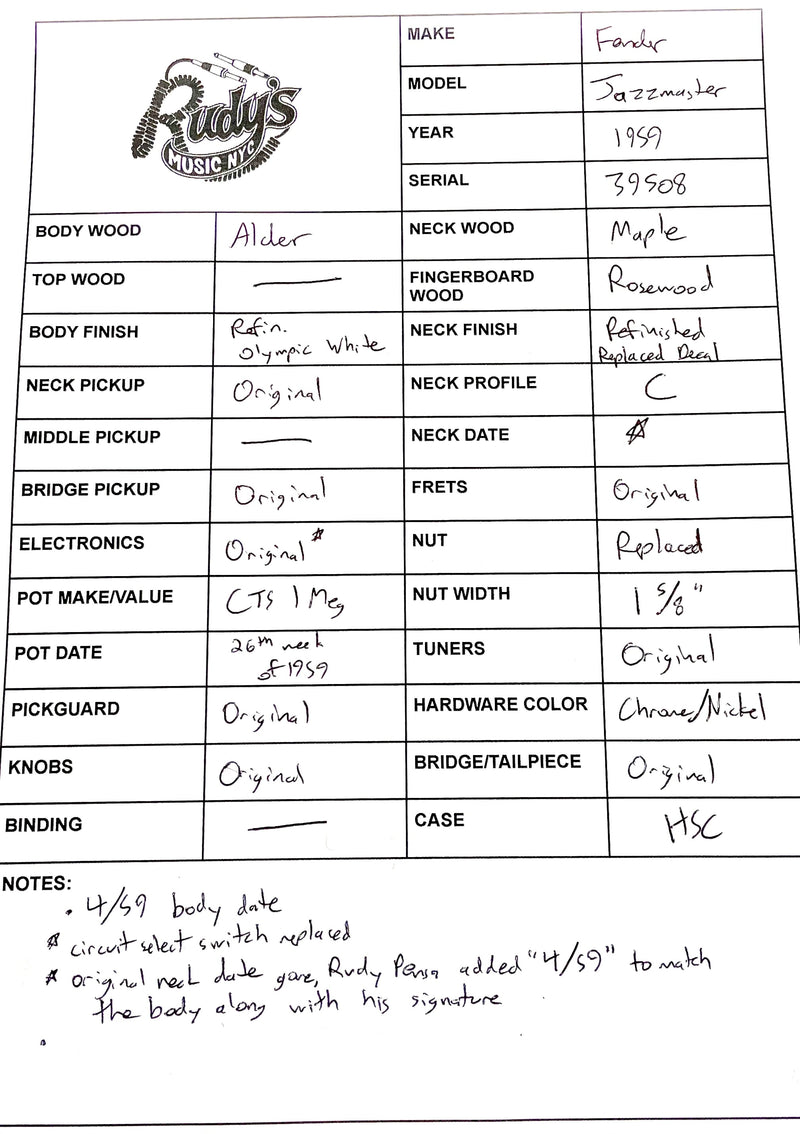 Rudy's
MUSIC NYC
MAKE Fender
MODEL Jazzmaster
YEAR 1959
SERIAL 39508
BODY WOOD Alder NECK WOOD Maple
TOP WOOD — FINGERBOARD WOOD Rosewood
BODY FINISH Refin. Olympic White NECK FINISH Refinished Replaced Decal
NECK PICKUP Original NECK PROFILE C
MIDDLE PICKUP — NECK DATE ☆
BRIDGE PICKUP Original FRETS Original
ELECTRONICS Original☆ NUT Replaced
POT MAKE/VALUE CTS 1 Meg NUT WIDTH 1 5/8"
POT DATE 26th week of 1959 TUNERS Original
PICKGUARD Original HARDWARE COLOR Chrome/Nickel
KNOBS Original BRIDGE/TAILPIECE Original
BINDING — CASE HSC
NOTES:
• 4/59 body date
☆ circuit select switch replaced
☆ original neck date gone, Rudy Pensa added "4/59" to match
the body along with his signature